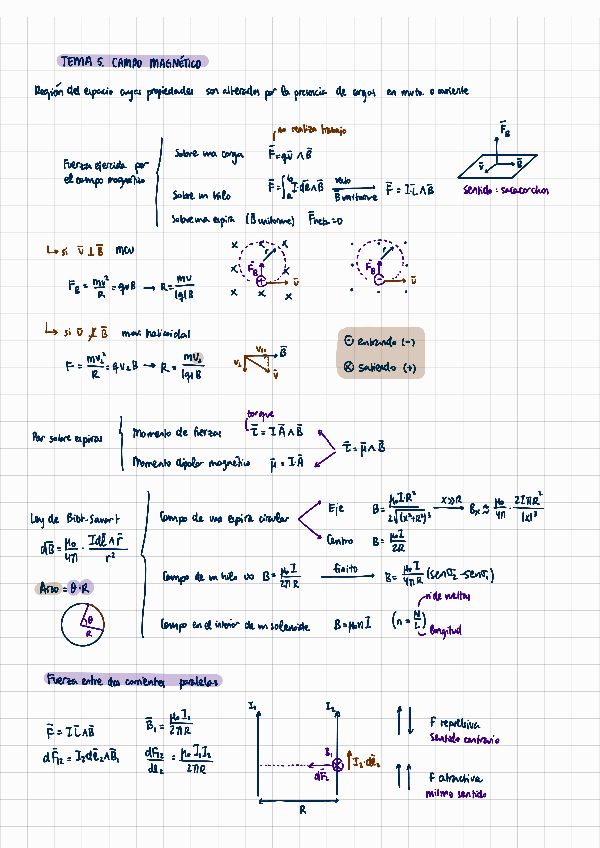 TEMA 5. CAMPO MAGNÉTICO
Región del espacio cuyas propiedades son alteradas por la presencia de cargas en mvto. o corriente
no realiza trabajo
Fuerza ejercida por
el campo magnético
Sobre una carga F⃗=qv⃗ ∧ B⃗
Sobre un hilo F⃗=∫ₐᵇ I·dℓ⃗∧B⃗ recto B uniforme → F⃗ = I·L⃗∧B⃗
Sobre una espira (B⃗ uniforme) F⃗neta=0
F⃗B
v⃗ B⃗
sentido: sacacorchos
↳ si v⃗ ⊥ B⃗ mcu
F_B = mv²/R = qvB → R = mv/|q|B
x x x x x x x
r F⃗B + v⃗
r F⃗B - v⃗
↳ si v⃗ ⊥̸ B⃗ mov helicoidal
F = mv⊥²/R = qv⊥B → R = mv⊥/|q|B
v∥ B⃗ v⊥ v⃗
⊙ entrando (-)
⊗ saliendo (+)
torque
Par sobre espiras
Momento de fuerzas τ⃗ = I A⃗ ∧ B⃗
Momento dipolar magnético μ⃗ = I·A⃗
τ⃗ = μ⃗ ∧ B⃗
Ley de Biot-Savart
dB⃗ = μ₀/4π · Idℓ⃗ ∧ r̂/r²
Campo de una espira circular
Eje B = μ₀I·R²/2√(x²+R²)³ x≫R → Bx ≈ μ₀/4π · 2IπR²/|x|³
Centro B = μ₀I/2R
Campo de un hilo ∞ B = μ₀I/2πR finito → B = μ₀I/4πR (senθ₂ - senθ₁)
Arco = θ·R
θ
R
nº de vueltas
Campo en el interior de un solenoide B = μ₀nI (n = N/L)
longitud
Fuerza entre dos corrientes paralelas
F⃗ = I L⃗ ∧ B⃗ B⃗₁ = μ₀I₁/2πR
dF⃗₁₂ = I₂dℓ⃗₂ ∧ B⃗₁ dF₁₂/dℓ₂ = μ₀I₁I₂/2πR
I₁ I₂
B₁
dF⃗₁₂ I₂·dℓ⃗₂
R
↑↓ F repulsiva
sentido contrario
↑↑ F atractiva
mismo sentido